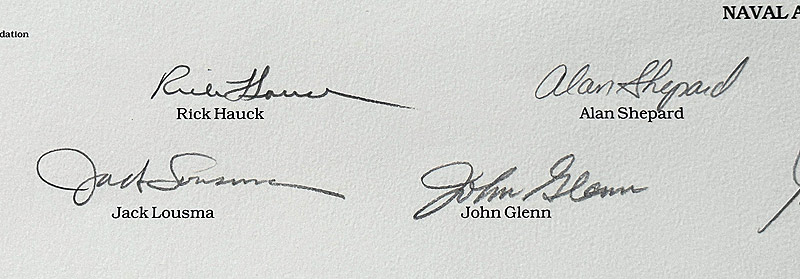 NAVAL A
dation
Rick Hauck Alan Shepard
Rick Hauck Alan Shepard
Jack Lousma John Glenn
Jack Lousma John Glenn